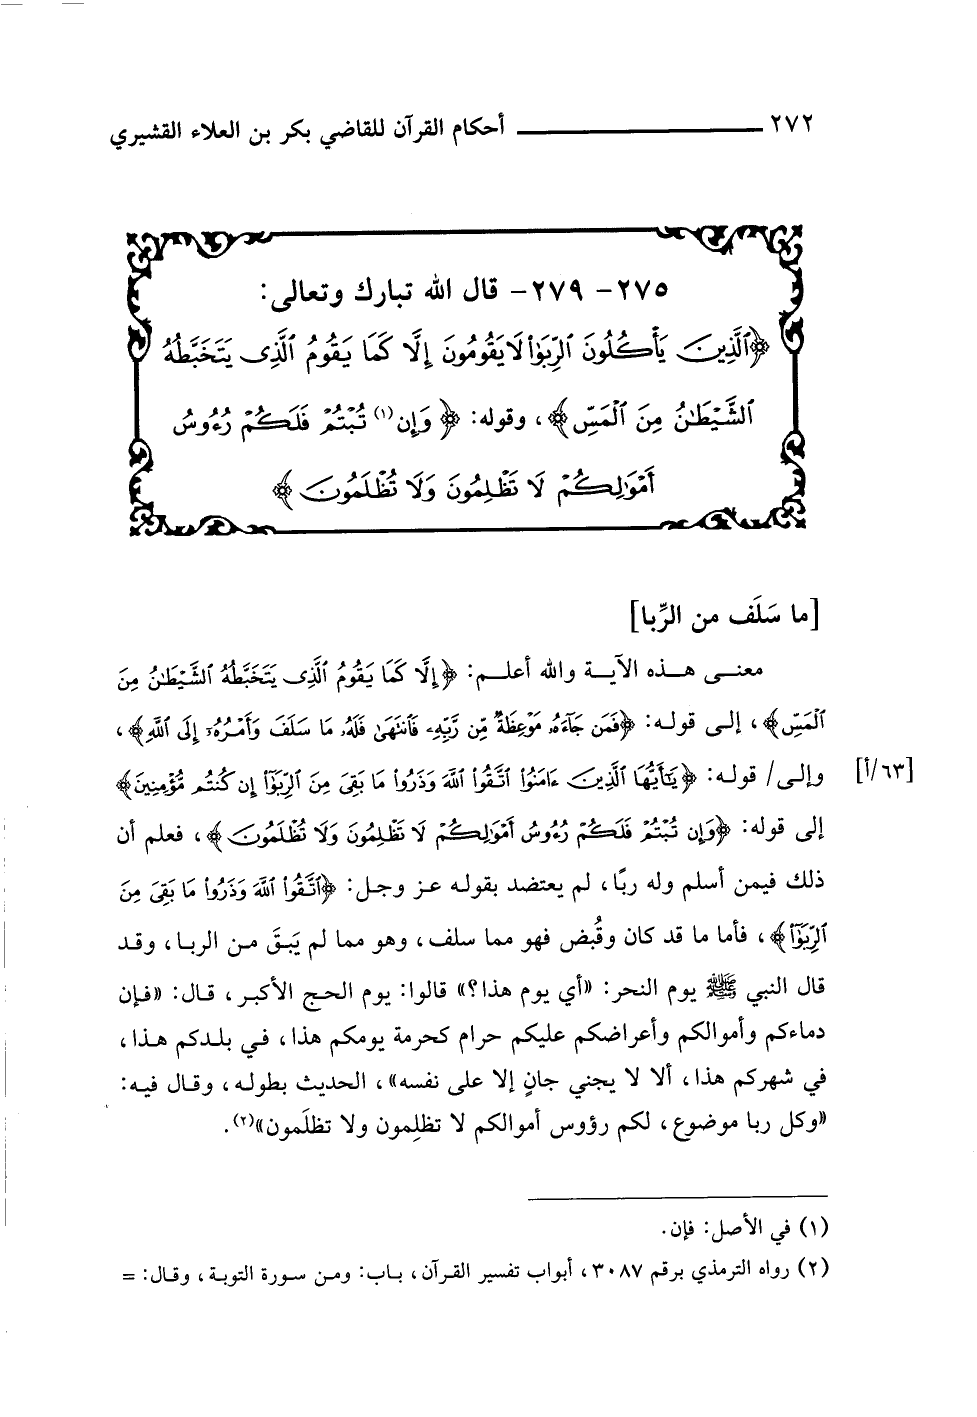 ٢٧٢ أحكام القرآن للقاضي بكر بن العلاء القشيري
٢٧٥- ٢٧٩- قال الله تبارك وتعالى:
﴿ٱلَّذِينَ يَأْكُلُونَ ٱلرِّبَوٰا۟ لَا يَقُومُونَ إِلَّا كَمَا يَقُومُ ٱلَّذِى يَتَخَبَّطُهُ
ٱلشَّيْطَـٰنُ مِنَ ٱلْمَسِّ﴾، وقوله: ﴿وَإِن(١) تُبْتُمْ فَلَكُمْ رُءُوسُ
أَمْوَٰلِكُمْ لَا تَظْلِمُونَ وَلَا تُظْلَمُونَ﴾
[ما سَلَف من الرِّبا]
معنـى هـذه الآيـة والله أعلـم: ﴿إِلَّا كَمَا يَقُومُ ٱلَّذِى يَتَخَبَّطُهُ ٱلشَّيْطَـٰنُ مِنَ
ٱلْمَسِّ﴾، إلـى قولـه: ﴿فَمَن جَآءَهُۥ مَوْعِظَةٌ مِّن رَّبِّهِۦ فَٱنتَهَىٰ فَلَهُۥ مَا سَلَفَ وَأَمْرُهُۥٓ إِلَى ٱللَّهِ﴾،
[٦٣/أ] وإلـى/ قولـه: ﴿يَـٰٓأَيُّهَا ٱلَّذِينَ ءَامَنُوا۟ ٱتَّقُوا۟ ٱللَّهَ وَذَرُوا۟ مَا بَقِىَ مِنَ ٱلرِّبَوٰٓا۟ إِن كُنتُم مُّؤْمِنِينَ﴾
إلى قوله: ﴿وَإِن تُبْتُمْ فَلَكُمْ رُءُوسُ أَمْوَٰلِكُمْ لَا تَظْلِمُونَ وَلَا تُظْلَمُونَ﴾، فعلم أن
ذلك فيمن أسلم وله ربًا، لم يعتضد بقولـه عز وجل: ﴿ٱتَّقُوا۟ ٱللَّهَ وَذَرُوا۟ مَا بَقِىَ مِنَ
ٱلرِّبَوٰٓا۟﴾، فأما ما قد كان وقُبض فهو مما سلف، وهو مما لم يَبقَ مـن الربـا، وقـد
قال النبي ﷺ يوم النحر: «أي يوم هذا؟» قالوا: يوم الحج الأكبر، قـال: «فـإن
دماءكم وأموالكم وأعراضكم عليكم حرام كحرمة يومكم هذا، فـي بلـدكم هـذا،
في شهركم هذا، ألا لا يجني جانٍ إلا على نفسه»، الحديث بطولـه، وقـال فيـه:
«وكل ربا موضوع، لكم رؤوس أموالكم لا تظلِمون ولا تظلَمون»(٢).
(١) في الأصل: فإن.
(٢) رواه الترمذي برقم ٣٠٨٧، أبواب تفسير القـرآن، بـاب: ومـن سـورة التوبـة، وقـال: =